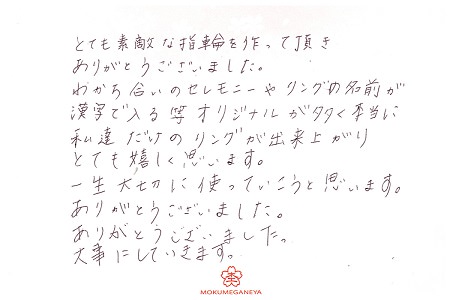 とても素敵な指輪を作って頂き
ありがとうございました。
わかち合いのセレモニーや リングの名前が
漢字で入る等 オリジナルが多く本当に
私達だけのリングが出来上がり
とても嬉しく思います。
一生大切に使っていこうと思います。
ありがとうございました。
ありがとうございました。
大事にしていきます。
MOKUMEGANEYA